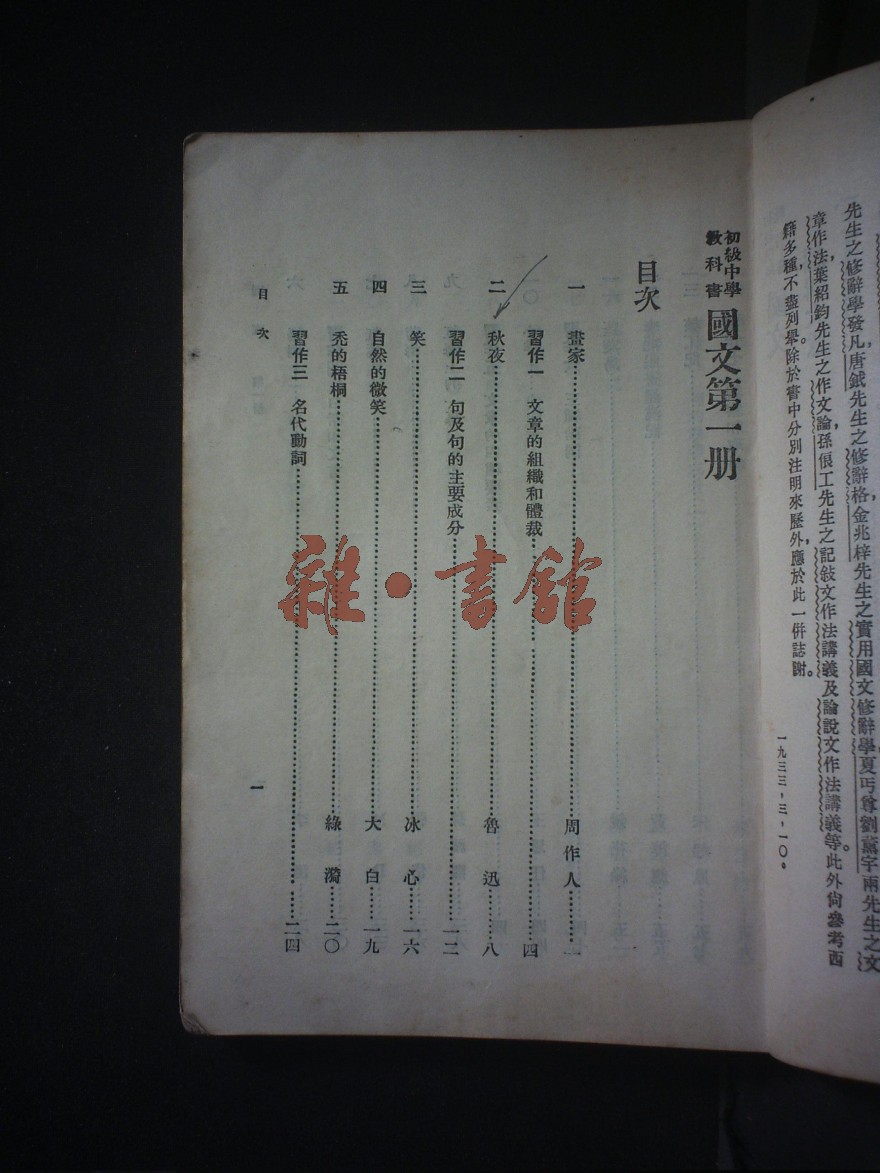 先生之修辭學發凡,唐鉞先生之修辭格,金兆梓先生之實用國文修辭學,夏丏尊劉薰宇兩先生之文
章作法,葉紹鈞先生之作文論,孫俍工先生之記敍文作法講義及論說文作法講義等。此外尙參考西
籍多種,不盡列舉。除於書中分別注明來歷外,應於此一併誌謝。
一九三三,三,一〇。
初級中學
教科書
國文第一册
目次
一 畫家……周作人……一
習作一 文章的組織和體裁……四
二 秋夜……魯迅……八
習作二 句及句的主要成分……一二
三 笑……冰心……一六
四 自然的微笑……大白……一九
五 禿的梧桐……綠漪……二〇
習作三 名代動詞……二四
目次
一
雜·書館